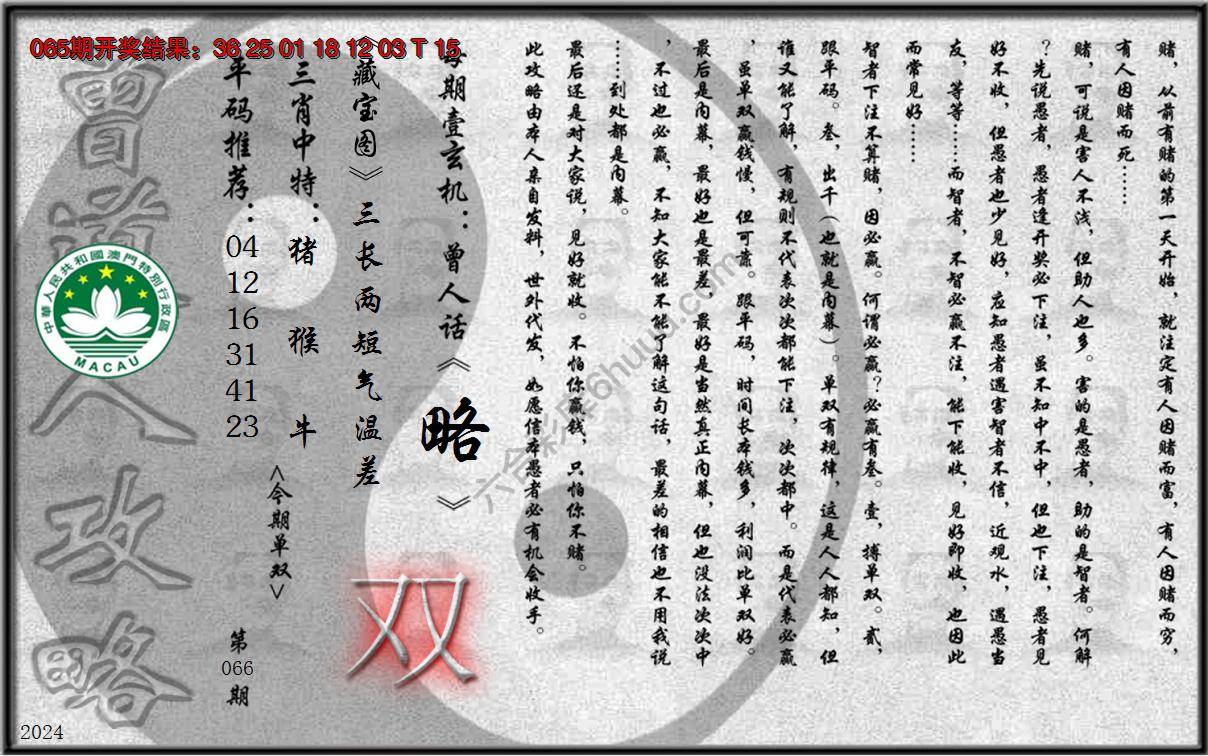 065期开奖结果：36 25 01 18 12 03 T 15
赌，从前有赌的第一天开始，就注定有人因赌而富，有人因赌而穷，
有人因赌而死……
赌，可说是害人不浅，但助人也多。害的是愚者，助的是智者。何解
？先说愚者，愚者逢开奖必下注，虽不知中不中，但也下注，愚者见
好不收，但愚者也少见好，应知愚者遇害智者不信，近观水，遇愚当
友，等等……而智者，不智必赢不注，能下能收，见好即收，也因此
而常见好……
智者下注不算赌，因必赢。何谓必赢？必赢有叁。壹，搏单双。贰，
跟平码。叁，出千（也就是内幕）。单双有规律，这是人人都知，但
谁又能了解，有规则不代表次次都能下注，次次都中。而是代表必赢
，虽单双赢钱慢，但可靠。跟平码，时间长本钱多，利润比单双好。
最后是内幕，最好也是最差，最好是当然真正内幕，但也没法次次中
，不过也必赢，不知大家能不能了解这句话，最差的相信也不用我说
……到处都是内幕。
最后还是对大家说，见好就收。不怕你赢钱，只怕你不赌。
此攻略由本人亲自发料，世外代发，如愿信本愚者必有机会收手。
每期壹玄机：曾人话《略》
《藏宝图》三长两短气温差
三肖中特：猪猴牛
平码推荐：04 12 16 31 41 23
<今期单双>
双
第066期
曾道人攻略
中華人民共和國澳門特別行政區
MACAU
六合彩库6huuu.com
2024